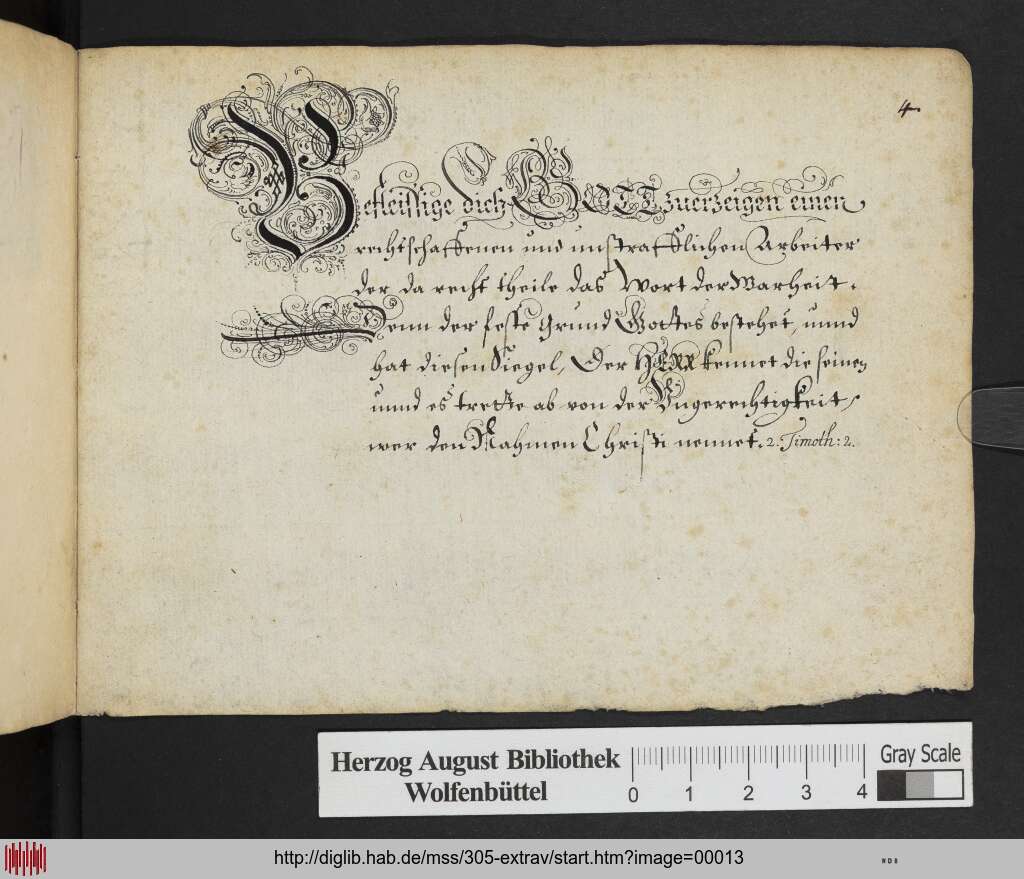 4.
Befleissige dich GOTT zuerzeigen einen
rechtschaffenen und unstrafflichen Arbeiter
der da recht theile das Wort der Warheit.
Denn der feste Grund Gottes bestehet, unnd
hat diesen Siegel, Der HERR kennet die seinen
unnd es trette ab von der Ungerechtigkeit,
wer den Nahmen Christi nennet. 2. Timoth: 2.
Herzog August Bibliothek
Wolfenbüttel
0 1 2 3 4
Gray Scale
http://diglib.hab.de/mss/305-extrav/start.htm?image=00013